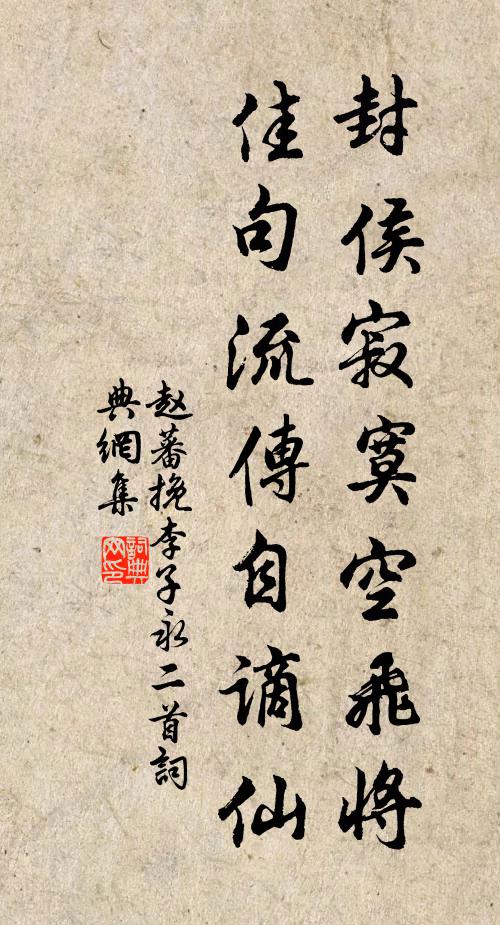 封侯寂寞空飛將
佳句流傳自謫仙
赵蕃挽李子永二首詞
典網集
詞典
网印